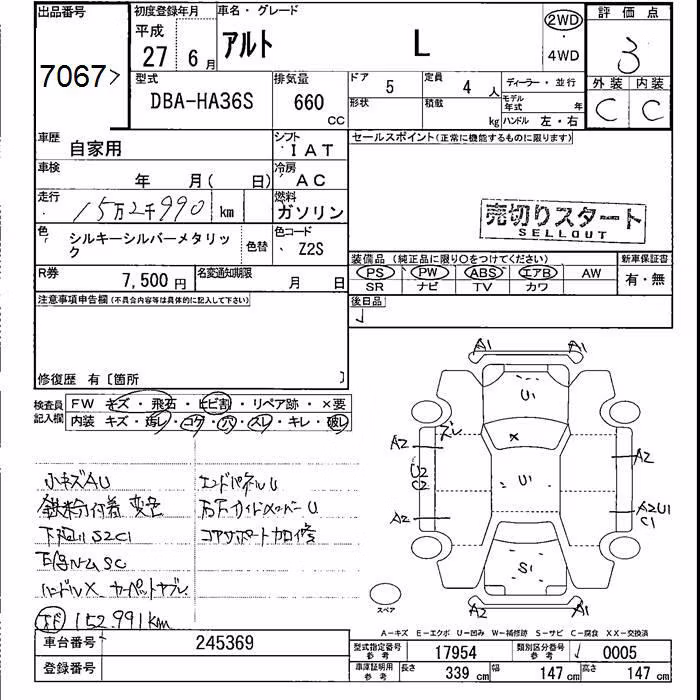 出品番号
7067>
初度登録年月
平成
27年 6月
車名・グレード
アルト L
2WD
・
4WD
評価点
3
外装 内装
C C
型式
DBA-HA36S
排気量
660
CC
ドア 5
定員 4 人
形状
積載 kg
ディーラー・並行
モデル年式 年
ハンドル 左・右
車歴
自家用
シフト
IAT
セールスポイント(正常に機能するものに限ります)
車検
年 月( 日)
冷房
AC
走行
15万2千990 km
燃料
ガソリン
売切りスタート
SELLOUT
色
シルキーシルバーメタリック
色替
色コード
Z2S
装備品 (純正品に限り○をつけてください)
新車保証書
PS PW ABS エアB AW
有・無
SR ナビ TV カワ
R券
7,500円
名変通知期限
月 日
後日品
注意事項申告欄(不具合内容等は具体的に記入して下さい)
修復歴 有〔箇所 〕
検査員記入欄
FW キズ・飛石・ヒビ割・リペア跡・×要
内装 キズ・汚レ・コゲ・穴・スレ・キレ・破レ
小キズAU
エンドパネルU
鉄粉付着 変色
下廻りS2C1
コアサポートカロ修
ハンドルX カーペットヤブレ
152.991km
A1 A1
U1
ズレ
X
A2 A2
U2
C2
U1
A2 A2U1
C1
S1
A2 A1
スペア
A-キズ E-エクボ U-凹み W-補修跡 S-サビ C-腐食 XX-交換済
車台番号
245369
登録番号
型式指定番号
参考
17954
類別区分番号
参考
0005
車庫証明用
参考
長さ 339 cm 幅 147 cm 高さ 147 cm